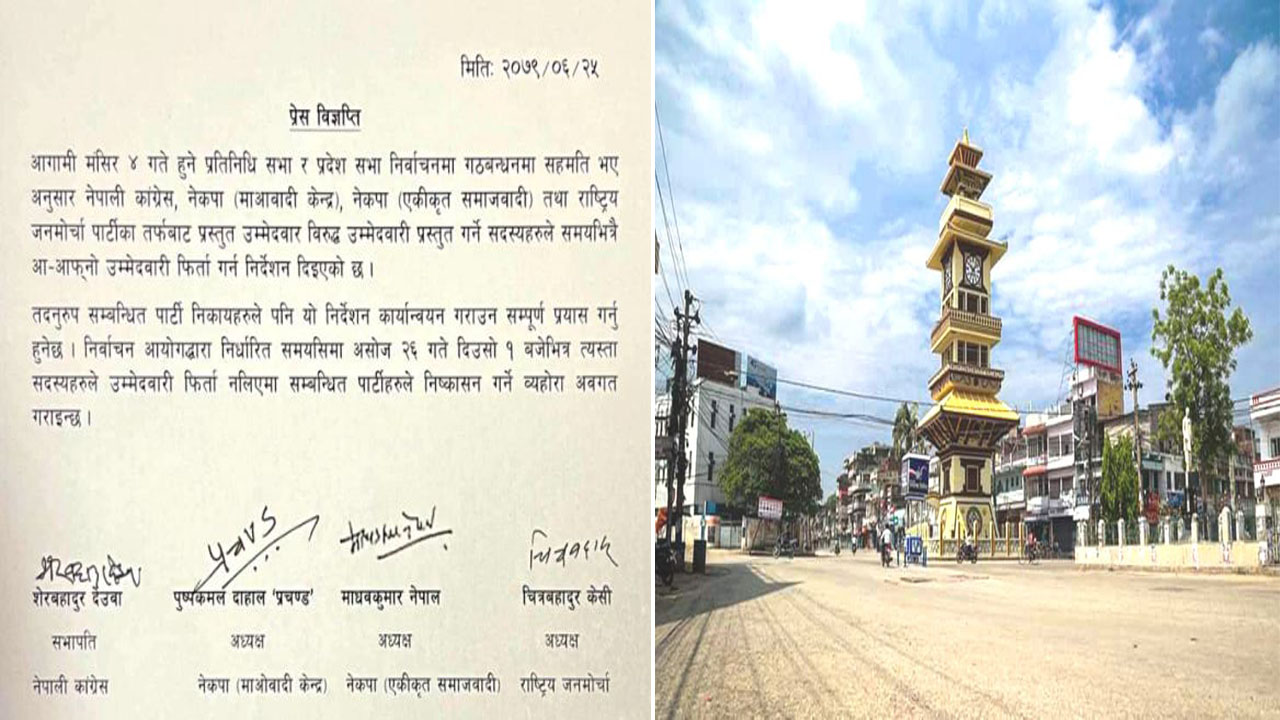 मितिः २०७९/०६/२५
प्रेस विज्ञप्ति
आगामी मंसिर ४ गते हुने प्रतिनिधि सभा र प्रदेश सभा निर्वाचनमा गठबन्धनमा सहमति भए
अनुसार नेपाली कांग्रेस, नेकपा (माओवादी केन्द्र), नेकपा (एकीकृत समाजवादी) तथा राष्ट्रिय
जनमोर्चा पार्टीका तर्फबाट प्रस्तुत उम्मेदवार विरुद्ध उम्मेदवारी प्रस्तुत गर्ने सदस्यहरुले समयभित्रै
आ-आफ्नो उम्मेदवारी फिर्ता गर्न निर्देशन दिइएको छ ।
तदनुरुप सम्बन्धित पार्टी निकायहरुले पनि यो निर्देशन कार्यान्वयन गराउन सम्पूर्ण प्रयास गर्नु
हुनेछ । निर्वाचन आयोगद्धारा निर्धारित समयसिमा असोज २६ गते दिउसो १ बजेभित्र त्यस्ता
सदस्यहरुले उम्मेदवारी फिर्ता नलिएमा सम्बन्धित पार्टीहरुले निष्कासन गर्ने व्यहोरा अवगत
गराइन्छ ।
शेरबहादुर देउवा पुष्पकमल दाहाल ‘प्रचण्ड’ माधवकुमार नेपाल चित्रबहादुर केसी
सभापति अध्यक्ष अध्यक्ष अध्यक्ष
नेपाली कांग्रेस नेकपा (माओवादी केन्द्र) नेकपा (एकीकृत समाजवादी) राष्ट्रिय जनमोर्चा